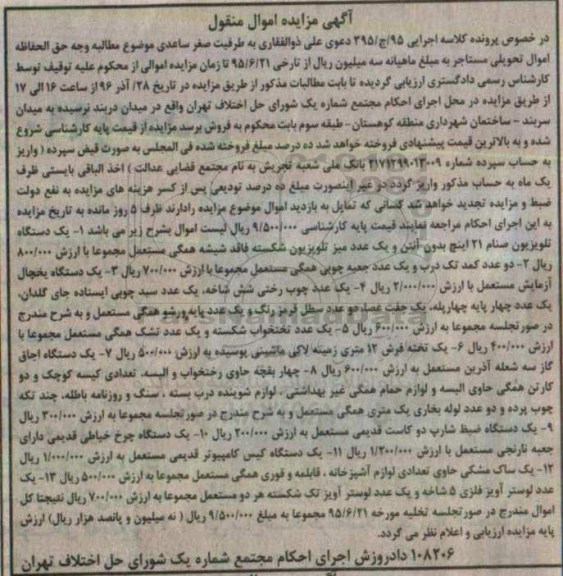 آگهی مزایده اموال منقول
در خصوص پرونده کلاسه اجرایی ۹۵/ج/۳۹۵ دعوی علی ذوالفقاری به طرفیت صفر ساعدی موضوع مطالبه وجه حق الحفاظه
اموال تحویلی مستاجر به مبلغ ماهیانه سه میلیون ریال از تارخی ۹۵/۶/۲۱ تا زمان مزایده اموالی از محکوم علیه توقیف توسط
کارشناس رسمی دادگستری ارزیابی گردیده تا بابت مطالبات مذکور از طریق مزایده در تاریخ ۲۸/ آذر ۹۶ از ساعت ۱۶ الی ۱۷
از طریق مزایده در محل اجرای احکام مجتمع شماره یک شورای حل اختلاف تهران واقع در میدان دربند نرسیده به میدان
سربند - ساختمان شهرداری منطقه کوهستان- طبقه سوم بابت محکوم به فروش برسد مزایده از قیمت پایه کارشناسی شروع
شده و به بالاترین قیمت پیشنهادی فروخته خواهد شد ده درصد مبلغ فروخته شده فی المجلس به صورت فیش سپرده ( واریز
به حساب سپرده شماره ۲۱۷۱۲۹۹۰۱۳۰۰۹ بانک ملی شعبه تجریش به نام مجتمع قضایی عدالت ) اخذ الباقی بایستی ظرف
یک ماه به حساب مذکور واریز گردد در غیر اینصورت مبلغ ده درصد تودیعی پس از کسر هزینه های مزایده به نفع دولت
ضبط و مزایده تجدید خواهد شد کسانی که تمایل به بازدید اموال موضوع مزایده رادارند ظرف ۵ روز مانده به تاریخ مزایده
به این اجرای احکام مراجعه نمایند قیمت پایه کارشناسی ۹/۵۰۰/۰۰۰ ریال لیست اموال بشرح زیر می باشد ۱- یک دستگاه
تلویزیون صنام ۲۱ اینچ بدون آنتن و یک عدد میز تلویزیون شکسته فاقد شیشه همگی مستعمل مجموعا با ارزش ۸۰۰/۰۰۰
ریال ۲- دو عدد کمد تک درب و یک عدد جعبه چوبی همگی مستعمل مجموعا با ارزش ۷۰۰/۰۰۰ ریال ۳- یک دستگاه یخچال
آزمایش مستعمل با ارزش ۲/۰۰۰/۰۰۰ ریال ۴- یک عدد چوب رختی شش شاخه، یک عدد سبد چوبی ایستاده جای گلدان،
یک عدد چهار پایه چهارپله، یک جفت عصا، دو عدد سطل قرمز رنگ و یک عدد پایه ورشو همگی مستعمل و به شرح مندرج
در صورتجلسه مجموعا به ارزش ۶۰۰/۰۰۰ ریال ۵- یک عدد تختخواب شکسته و یک عدد تشک همگی مستعمل مجموعا با
ارزش ۴۰۰/۰۰۰ ریال ۶- یک تخته فرش ۱۲ متری زمینه لاکی ماشینی پوسیده به ارزش ۵۰۰/۰۰۰ ریال ۷- یک دستگاه اجاق
گاز سه شعله آذرین مستعمل به ارزش ۶۰۰/۰۰۰ ریال ۸- چهار بقچه حاوی رختخواب و البسه، تعدادی کیسه کوچک و دو
کارتن همگی حاوی البسه و لوازم حمام همگی غیر بهداشتی ، لوازم شوینده درب بسته ، سنگ و روزنامه باطله، چند تکه
چوب پرده و دو عدد لوله بخاری یک متری همگی مستعمل و به شرح مندرج در صورتجلسه مجموعا به ارزش ۳۰۰/۰۰۰ ریال
۹- یک دستگاه ضبط شارپ دو کاست قدیمی مستعمل به ارزش ۲۰۰/۰۰۰ ریال ۱۰- یک دستگاه چرخ خیاطی قدیمی دارای
جعبه نارنجی مستعمل با ارزش ۱/۲۰۰/۰۰۰ ریال ۱۱- یک دستگاه کیس کامپیوتر قدیمی مستعمل به ارزش ۱/۰۰۰/۰۰۰ ریال
۱۲- یک ساک مشکی حاوی تعدادی لوازم آشپزخانه ، قابلمه و قوری همگی مستعمل مجموعا به ارزش ۵۰۰/۰۰۰ ریال ۱۳- یک
عدد لوستر آویز فلزی ۵ شاخه و یک عدد لوستر آویز تک شکسته هر دو مستعمل مجموعا به ارزش ۷۰۰/۰۰۰ ریال نتیجتا کل
اموال مندرج در صورتجلسه تخلیه مورخه ۹۵/۶/۲۱ مجموعا به مبلغ ۹/۵۰۰/۰۰۰ ریال ( نه میلیون و پانصد هزار ریال) ارزش
پایه مزایده ارزیابی و اعلام نظر می گردد.
۱۰۸۲۰۶ دادورزش اجرای احکام مجتمع شماره یک شورای حل اختلاف تهران